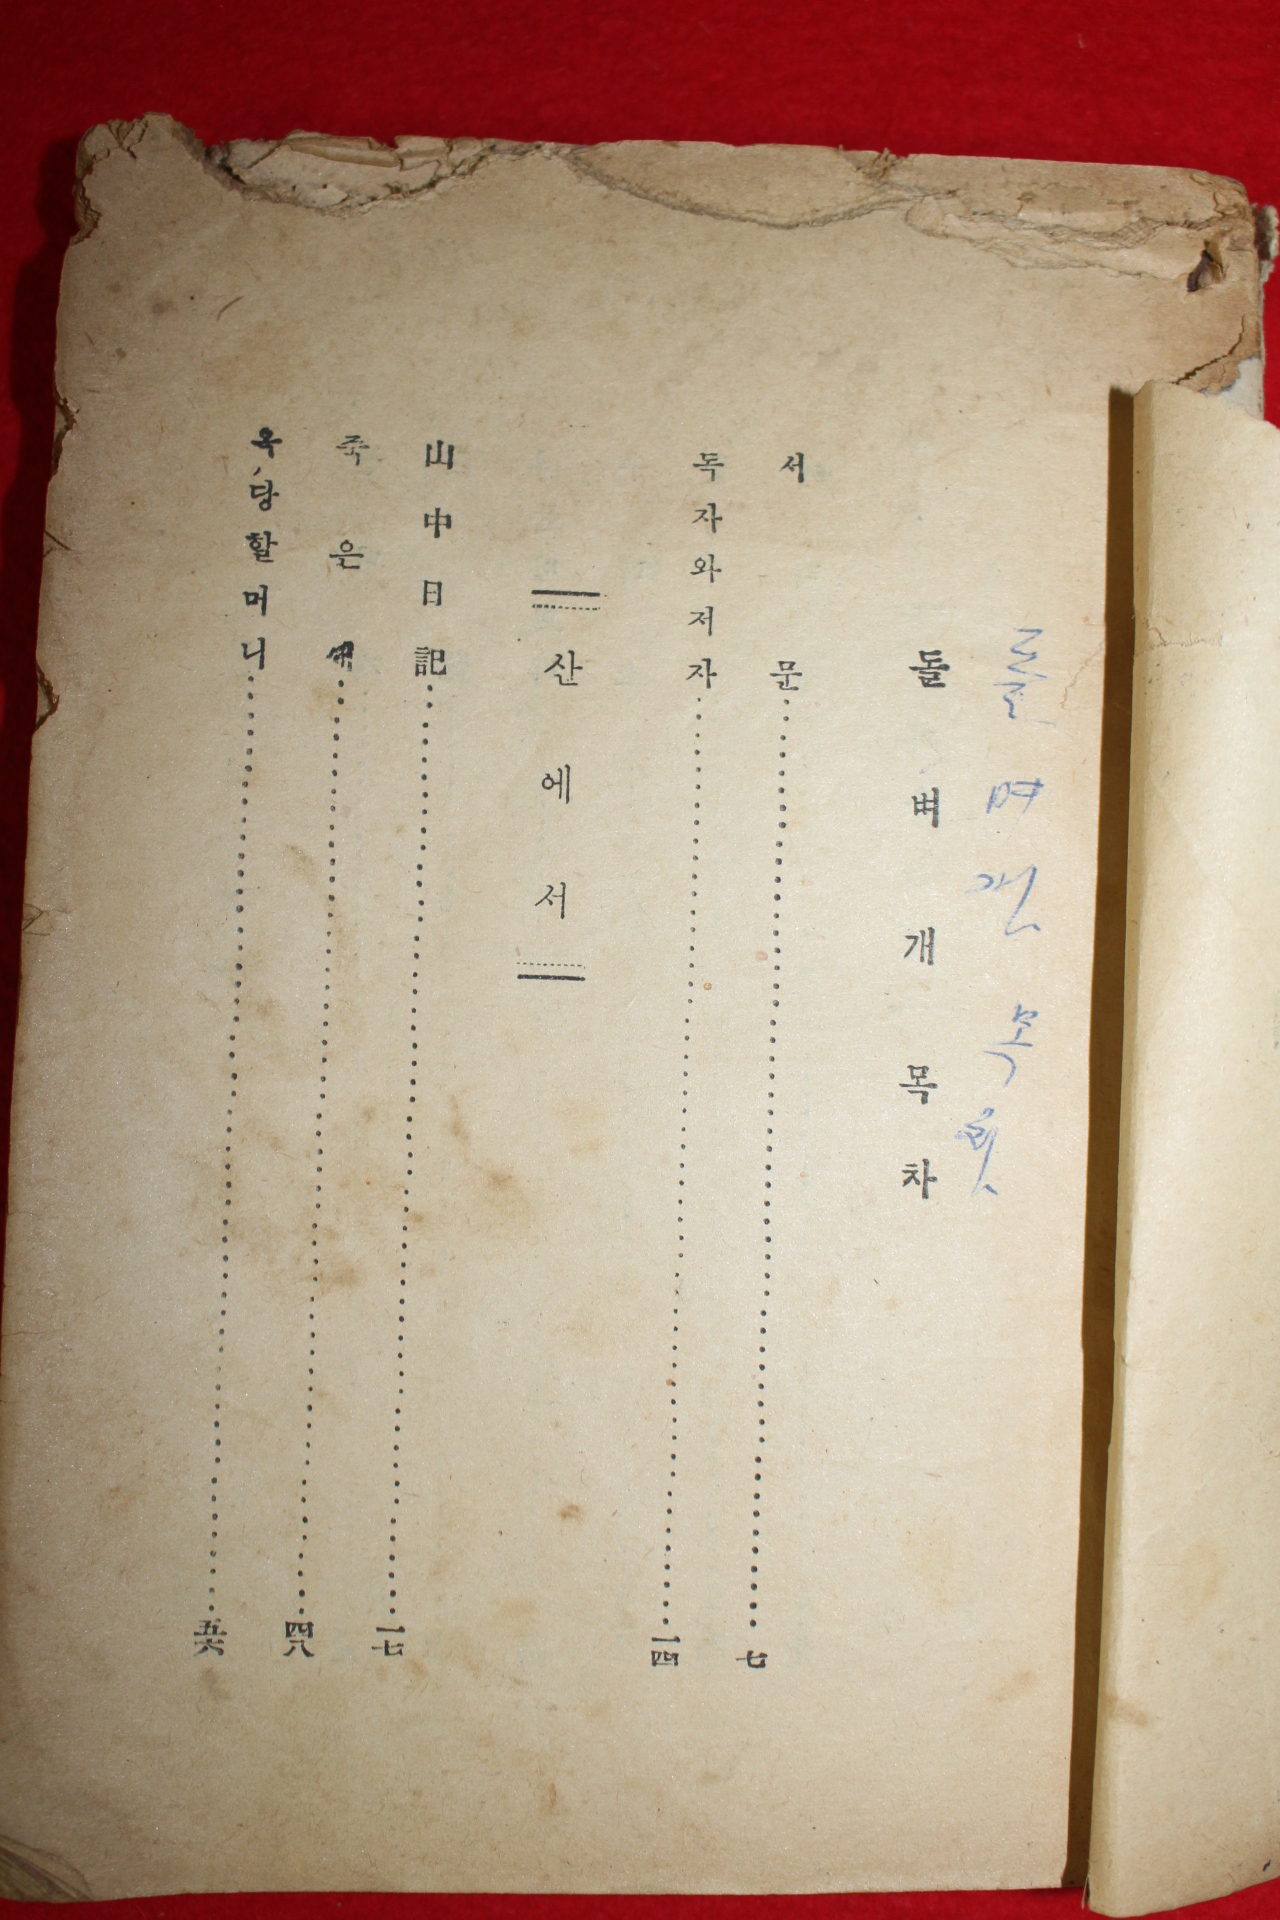 돌벼개목차
서문 七
독자와저자 一四
산에서
山中日記 一七
죽은새 四八
옥당할머니 五六